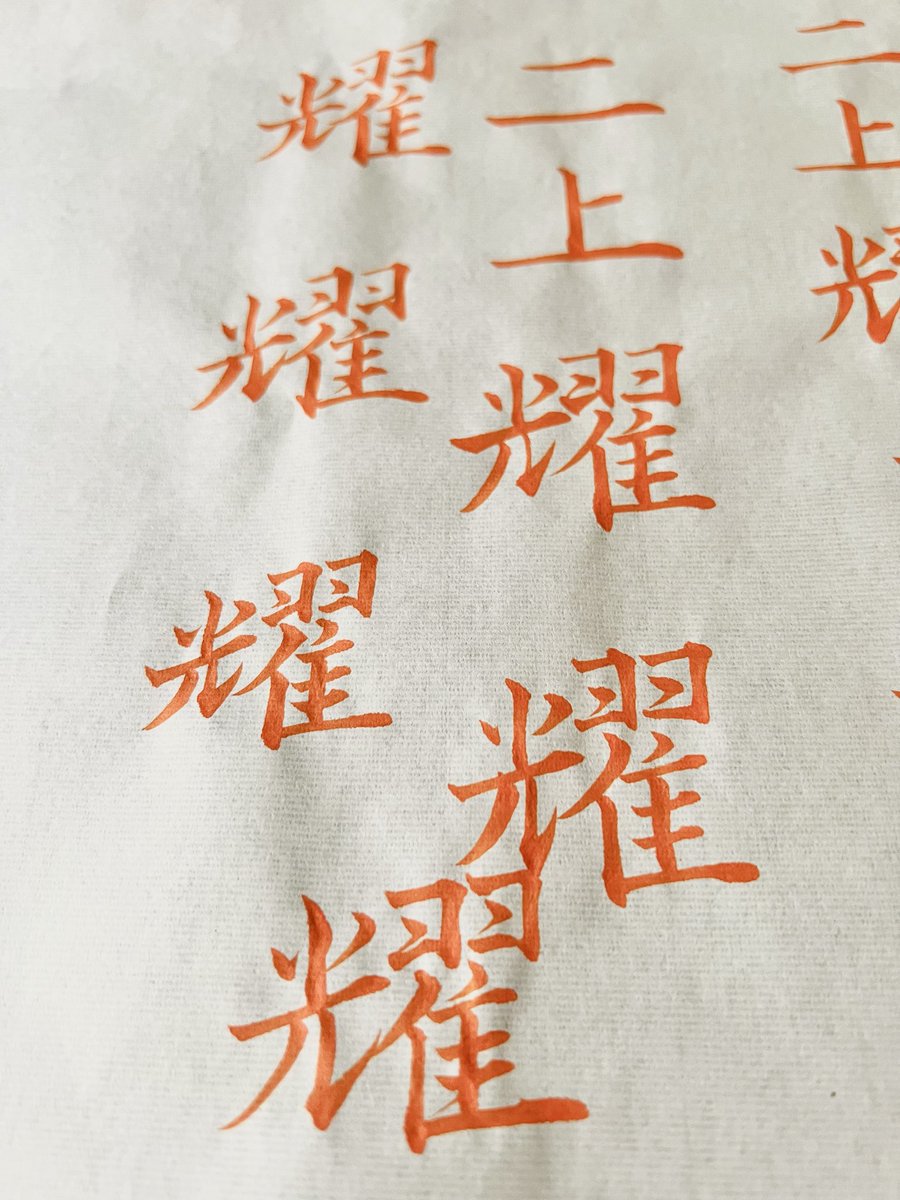 二上耀
二上耀耀
耀耀耀耀